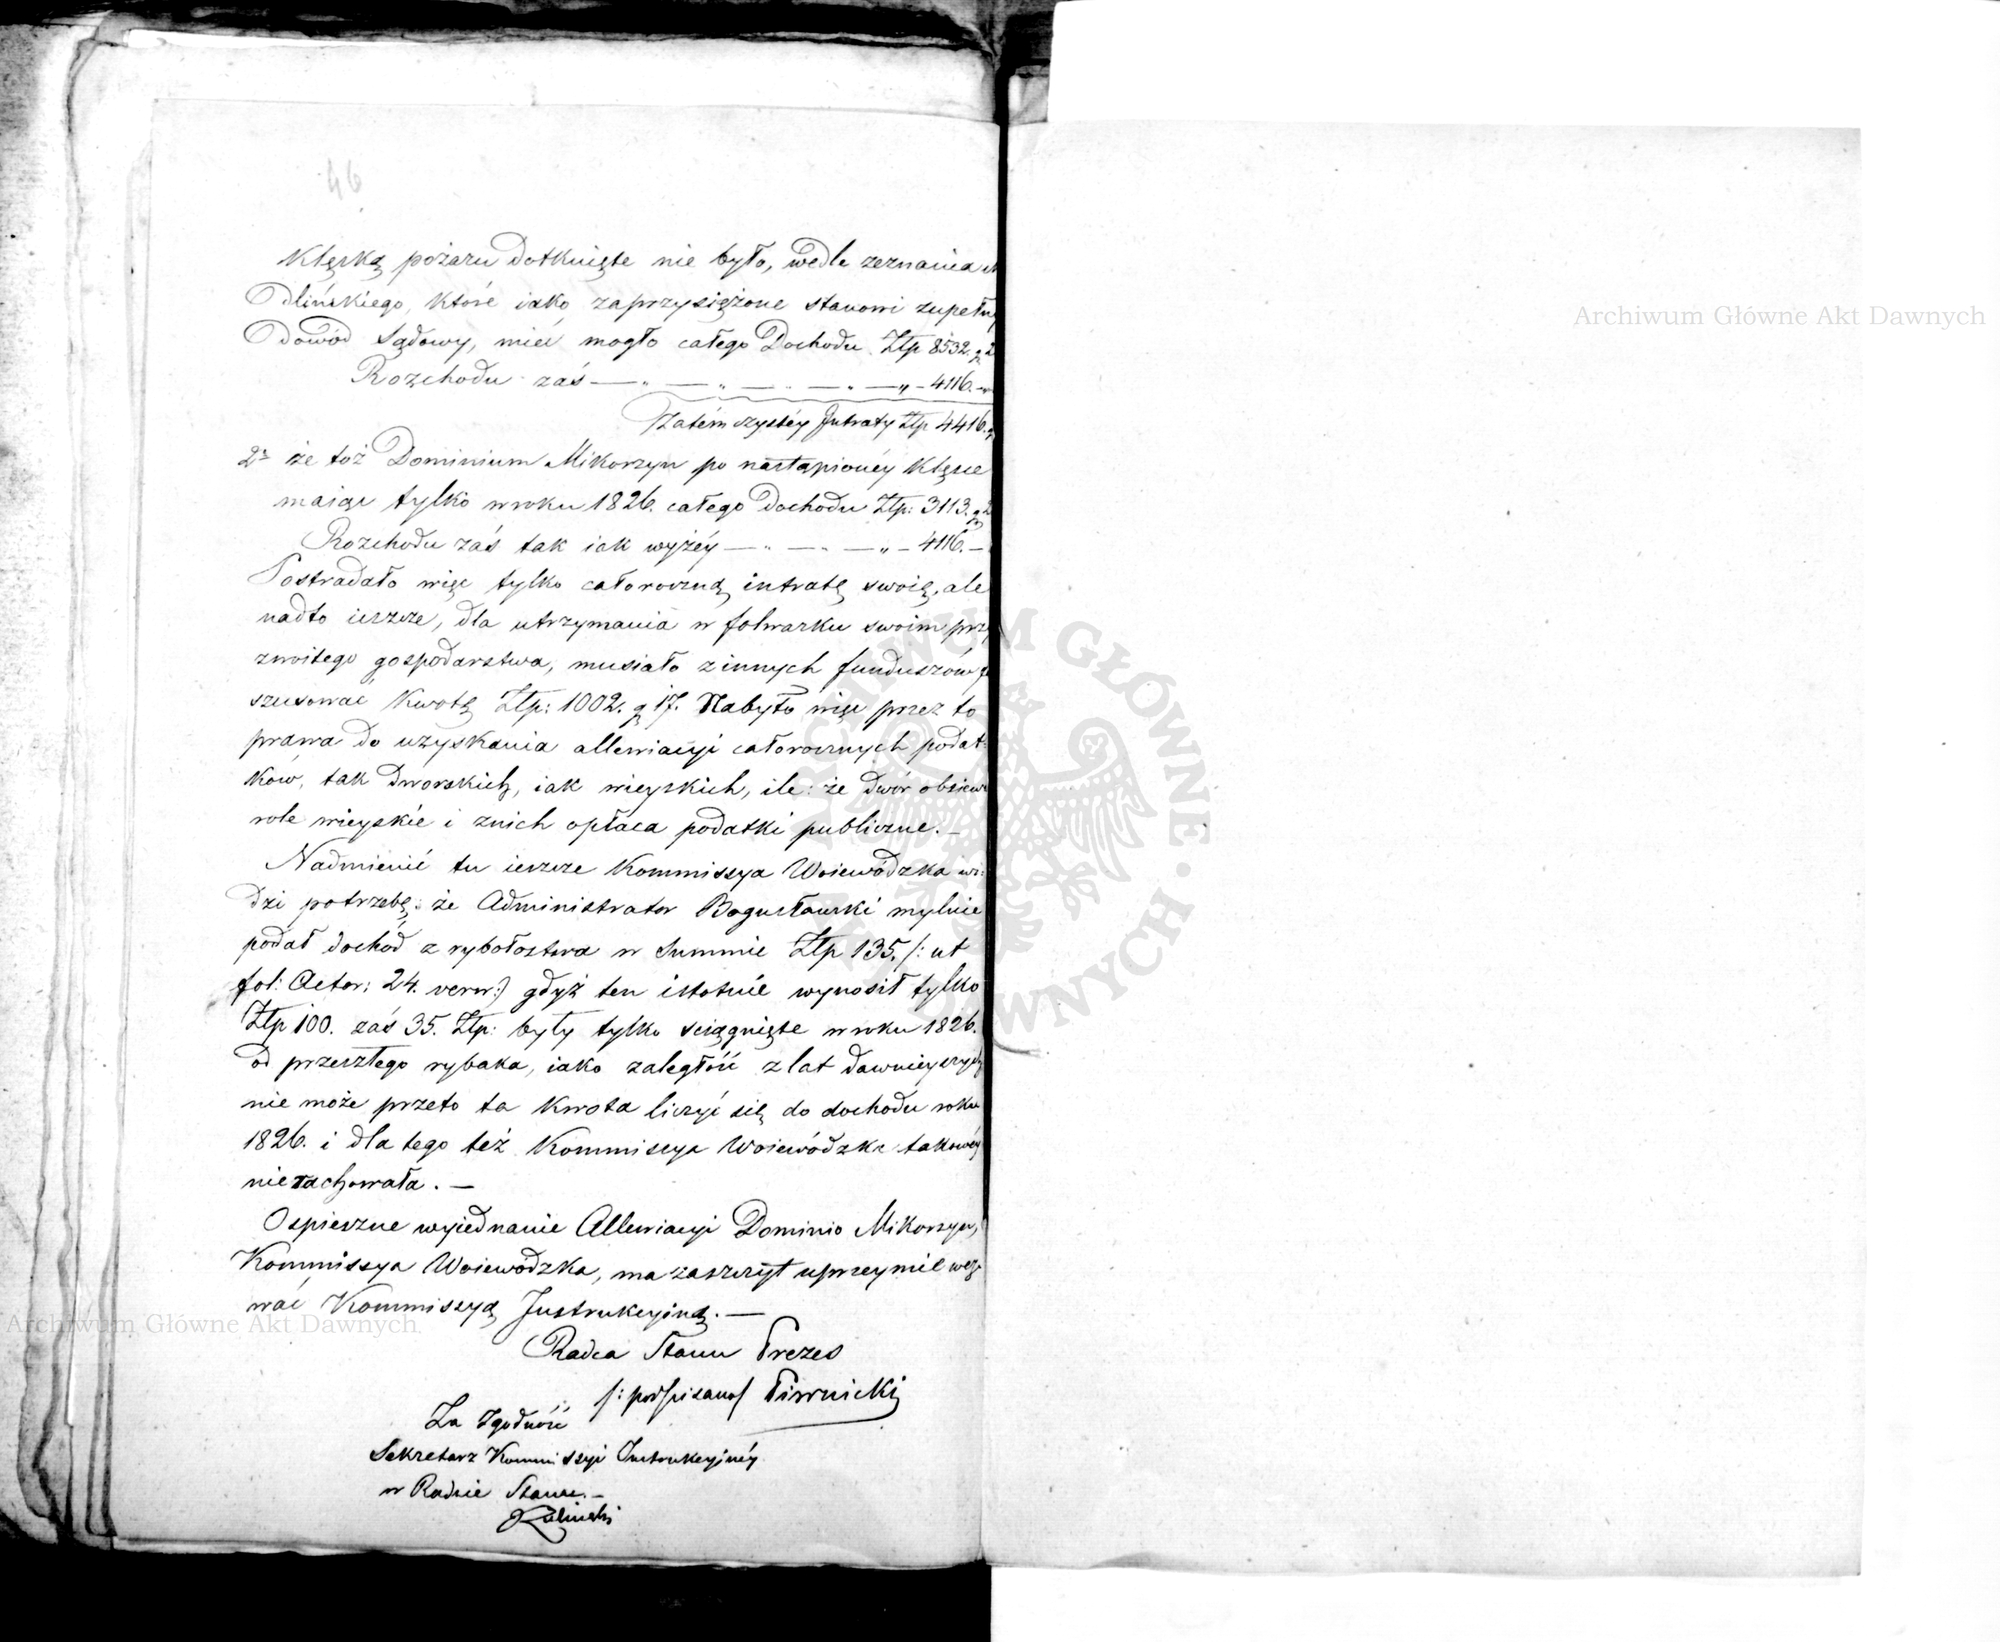 46
klęską pożaru dotknięte nie było, wedle zeznania
Odlińskiego, które iako zaprzysiężone stanowi zupełny
Dowód Sądowy, mieć mogło całego Dochodu Złp 8532. g 2
Rozchodu zaś — „ — „ — „ — „ — „ – 4116. –
Zatém czystéy Intraty Złp 4416. g
2° że toż Dominium Mikorzyn po nastąpionéy klęsce
maiąc tylko w roku 1826. całego Dochodu Złp: 3113. g 2
Rozchodu zaś tak iak wyżéy — „ — „ — „ – 4116. –
Postradało więc tylko całoroczną intratę swoię, ale
nadto ieszcze, dla utrzymania w folwarku swoim przy
zwoitego gospodarstwa, musiało z innych funduszów
szusować kwotę Złp: 1002. g 17. Nabyło więc przez to
prawa do uzyskania allewiacyi całorocznych podat:
ków, tak dworskich, iak wieyskich, ile: że dwór obsiewa
role wieyskie i znich opłaca podatki publiczne. –
Nadmienić tu ieszcze Kommissya Woiewódzka wi:
dzi potrzebę: że Administrator Bogusławski mylnie
podał dochód z rybołostwa w Summie Złp 135. /: ut
fol: Actor: 24. verso:) gdyż ten istotnie wynosił tylko
Złp 100. zaś 35. Złp: były tylko sciągnięte w roku 1826.
od przeszłego rybaka, iako zaległość z lat dawnieyszych
nie może przeto ta kwota liczyć się do dochodu roku
1826. i dla tego też Kommissya Woiewódzka takowéy
nierachowała. —
Ospieszne wyiednanie Allewiacyi Dominio Mikorzyn,
Kommissya Woiewódzka, ma zaszczyt uprzeymie wez:
wać Kommissyą Instrukcyiną. —
Radca Stanu Prezes
/: podpisano/ Piwnicki
Za Zgodność
Sekretarz Kommissyi Instrukcyinéy
w Radzie Stanu. –
Kaliński
Archiwum Główne Akt Dawnych
Archiwum Główne Akt Dawnych